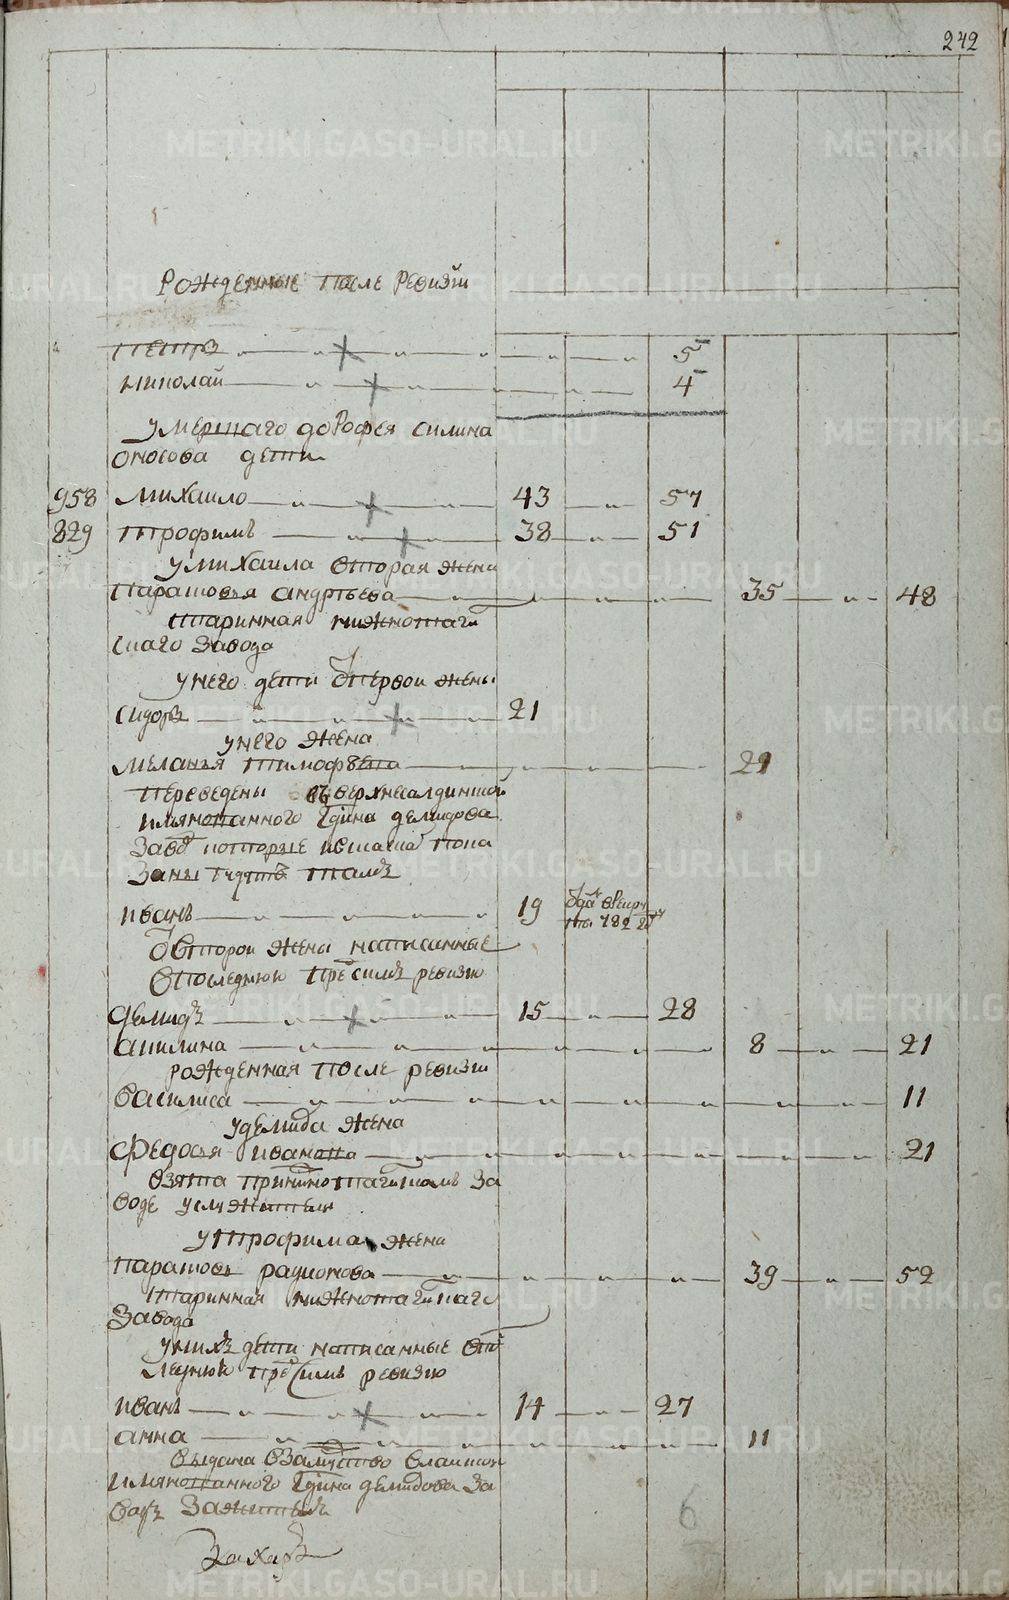 242
Рожденные после ревизіи
Петръ 5
Николай 4
умершаго дорофея силина
оносова дети
958 Михаило 43 57
829 трофимъ 38 51
умихаила вторая жена
парасковья андреева 35 48
старинная нижнотаги
скаго завода
унего дети отпервои жены
сидоръ 21
унего жена
меланья тимофеева 21
переведены въ верхнесалдинской
имянованного Гдина демидова
завод которые
заны будутъ тамъ
иванъ 19
отвторои жены написанные
впоследнюю пред симъ ревизию
демидъ 15 28
акилина 8 21
рожденная после ревизіи
василиса 11
удемида жена
федосья иванова 21
взята
воде ужительи
утрофима жена
парасковья радионова 39 52
старинная нижнотагилскаго
завода
унихъ дети написанные впос
леднюю пред симъ ревизию
иванъ 14 27
анна 11
выдана взамужство
имянованного Гдина демидова за
водъ
6
Захаръ
METRIKI.GASO-URAL.RU